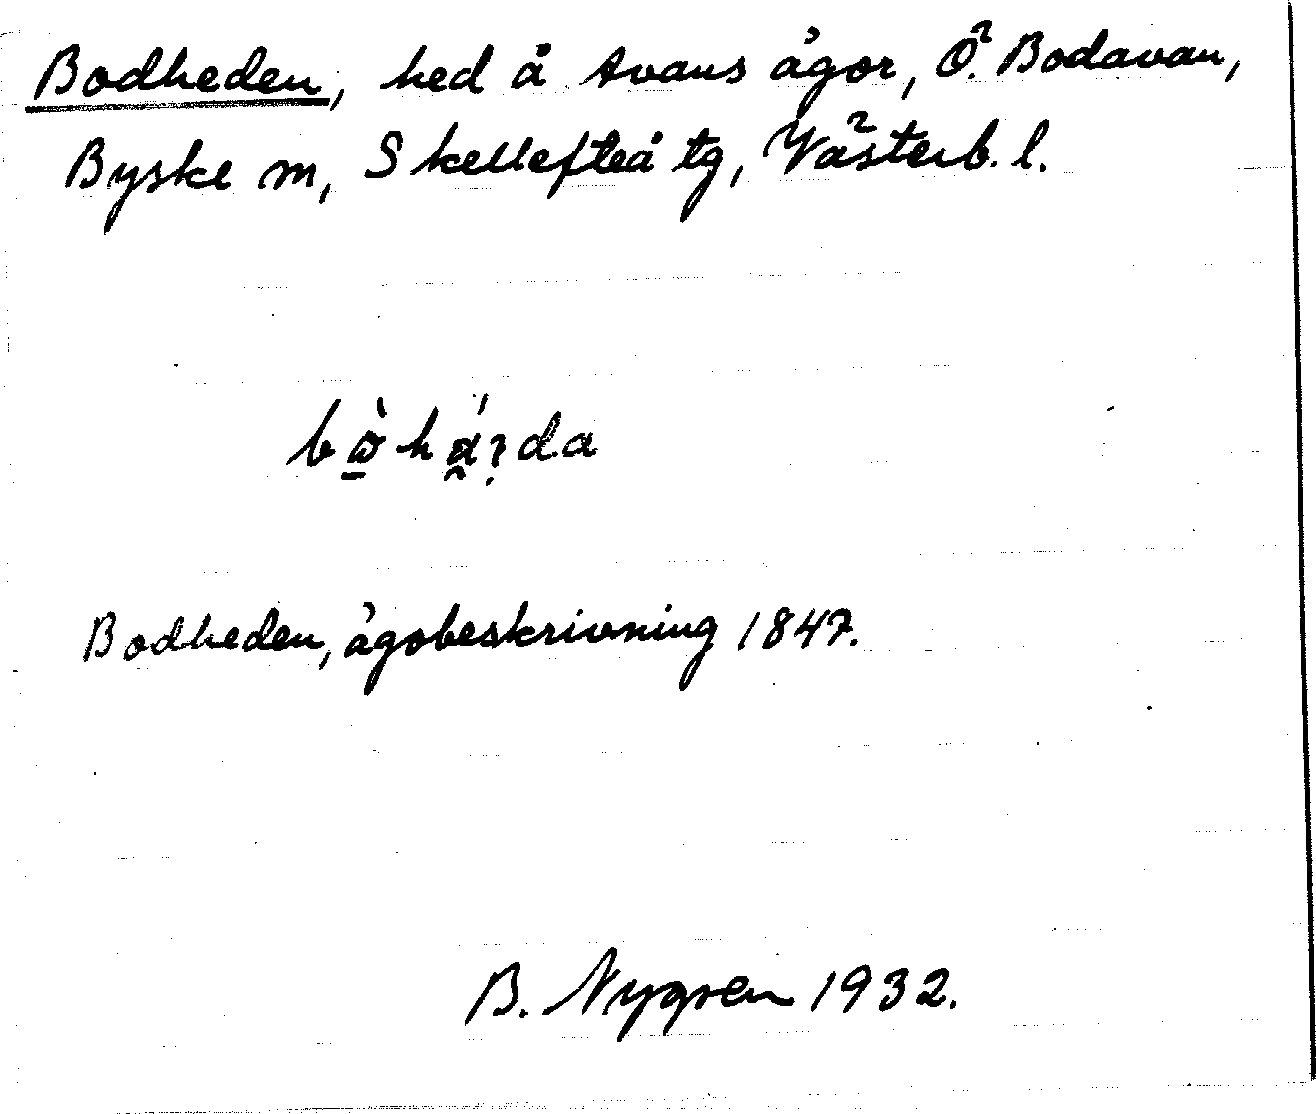 Bodheden, hed å Avans ägor, Ö. Bodavan,
Byske sn, Skellefteå tg, Västerb. l.
Bodheden, ägobeskrivning 1847.
B. Nygren 1932.